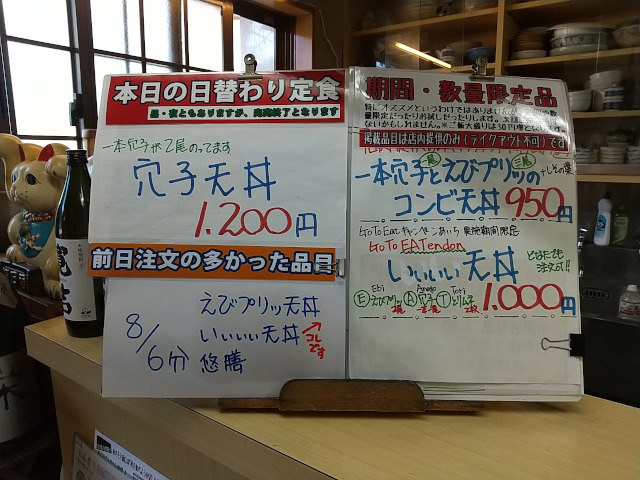 本日の日替わり定食
昼・夜ともありますが、完売終了となります
一本穴子が2尾のってます
穴子天丼
1.200円
前日注文の多かった品目
8/6分
えびプリッ天丼
いいいい天丼
コレです
悠膳
期間・数量限定品
掲載品目は店内提供のみ(テイクアウト不可)です
一本穴子とえびプリッの
+しその葉
コンビ天丼 950円
GoToEatキャンペーンあいち 実施期間限定
GoTo EATendon
いいいい天丼
1.000円
Ebi Anago Tori
Ⓔえびプリッ Ⓐ穴子 Ⓣとりムネ